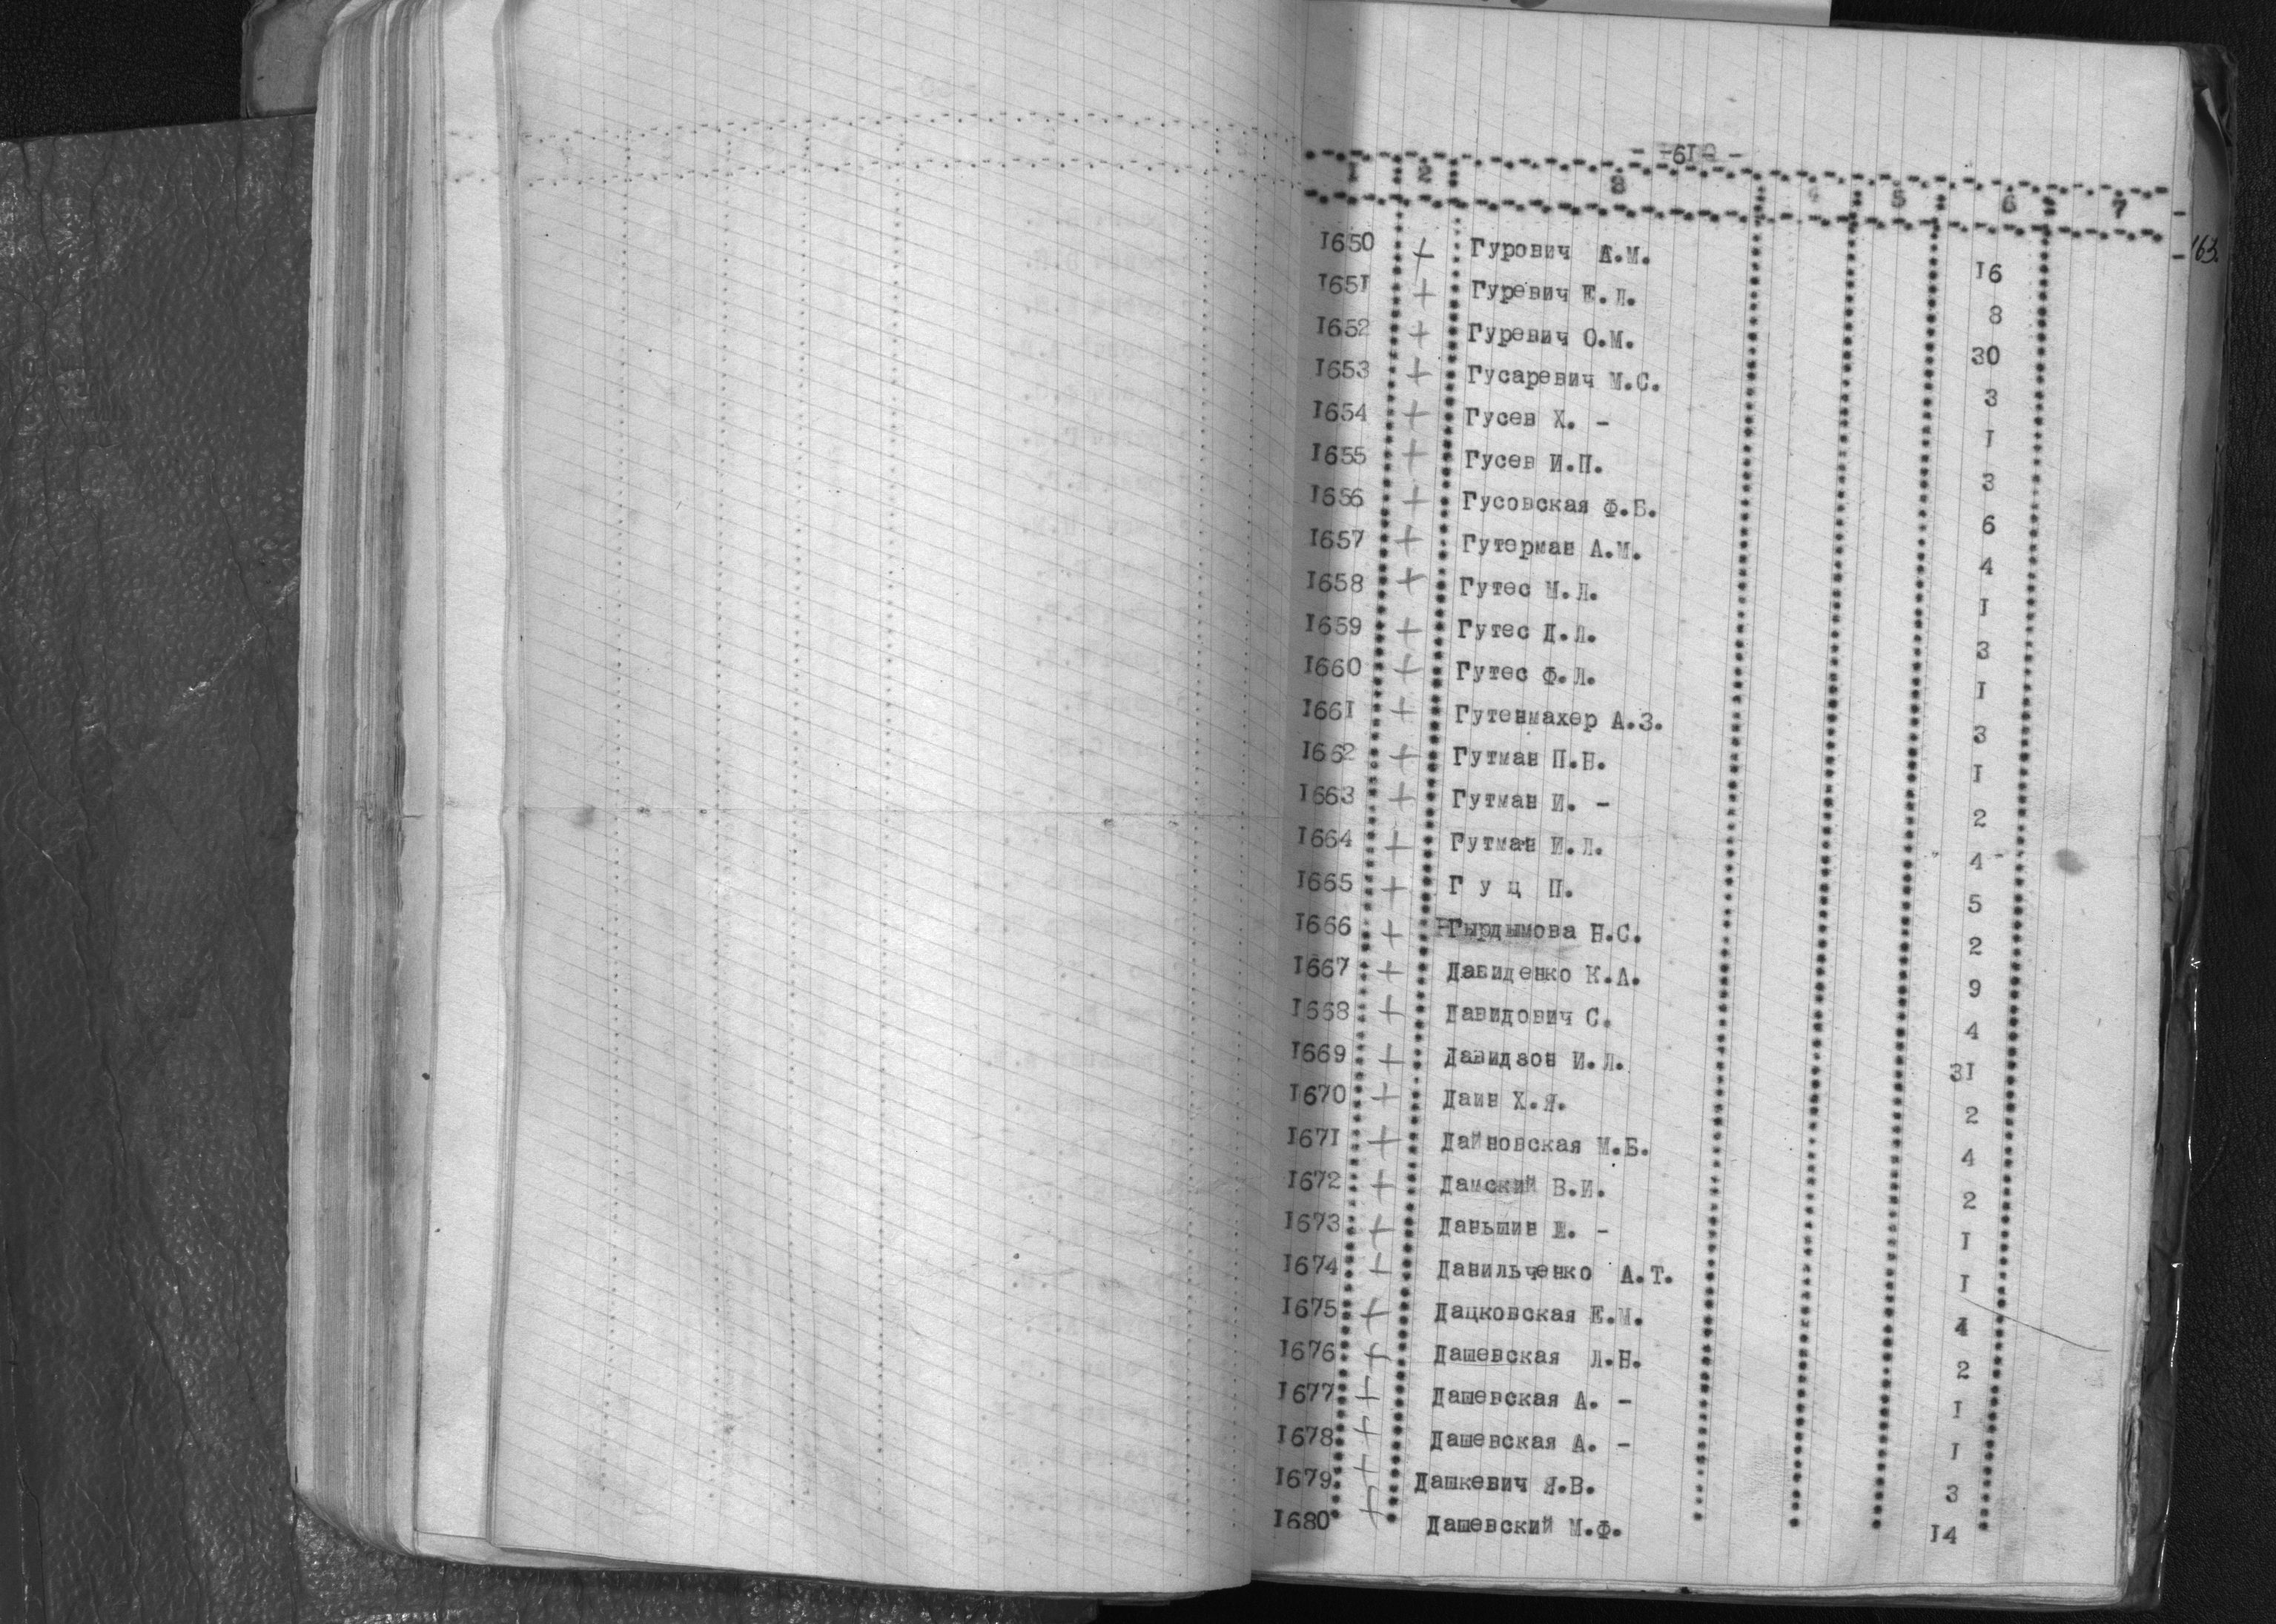 - -61- -
1 2 3 5 6 7
163
1650 + Гурович А.М. 16
1651 + Гуревич Е.Л. 8
1652 + Гуревич О.М. 30
1653 + Гусаревич М.С. 3
1654 + Гусев Х. - 1
1655 + Гусев И.П. 3
1656 + Гусовская Ф.Б. 6
1657 + Гутерман А.М. 4
1658 + Гутес М.Л. 1
1659 + Гутес Д.Л. 3
1660 + Гутес Ф.Л. 1
1661 + Гутенмахер А.З. 3
1662 + Гутман П.Н. 1
1663 + Гутман И. - 2
1664 + Гутман И.Л. 4
1665 + Г у ц П. 5
1666 + Гырдымова Н.С. 2
1667 + Давиденко К.А. 9
1668 + Давидович С. 4
1669 + Давидзон И.Л. 31
1670 + Даин Х.Я. 2
1671 + Дайновская М.Б. 4
1672 + Дамский В.И. 2
1673 + Даньшин Ш. - 1
1674 + Данильченко А.Т. 1
1675 + Дацковская Е.М. 4
1676 + Дашевская Л.Н. 2
1677 + Дашевская А. - 1
1678 + Дашевская А. - 1
1679 + Дашкевич Я.В. 3
1680 + Дашевский М.Ф. 14